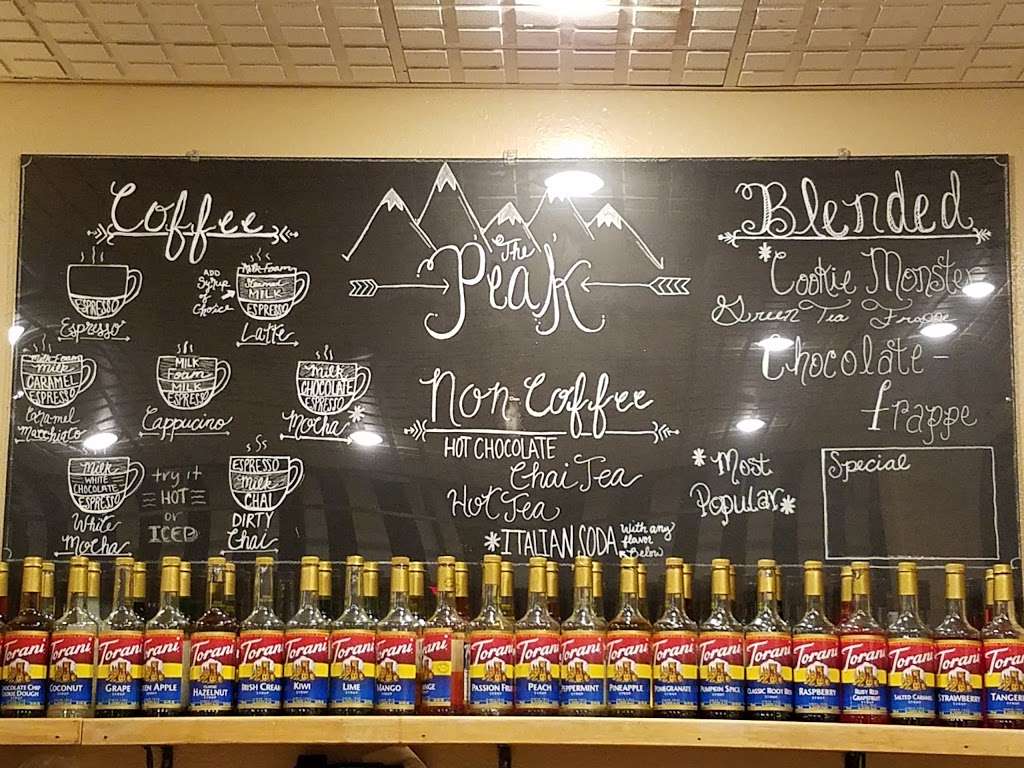 Coffee
ESPRESSO
Espresso
ADD
Syrup
of
Choice
Milk Foam
Steamed
MILK
ESPRESSO
Latte
Milk Foam
Milk
CARAMEL
ESPRESSO
Caramel
Macchiato
MILK
Foam
MILK
ESPRESSO
Cappucino
Milk
CHOCOLATE
ESPRESSO
Mocha*
Milk
WHITE
CHOCOLATE
ESPRESSO
White
Mocha
try it
HOT
or
ICED
ESPRESSO
Milk
CHAI
DIRTY
Chai
The
Peak
Non-Coffee
HOT CHOCOLATE
Chai Tea
Hot Tea
*ITALIAN SODA
With any
flavor
Below
Blended
*Cookie Monster
Green Tea Frappe
Chocolate-
frappe
*Most
Popular*
Special
Torani
CHOCOLATE CHIP
COOKIE DOUGH
SYRUP
Torani
COCONUT
SYRUP
Torani
GRAPE
SYRUP
Torani
EEN APPLE
SYRUP
Torani
HAZELNUT
SYRUP
Torani
IRISH CREAM
SYRUP
Torani
KIWI
SYRUP
Torani
LIME
SYRUP
Torani
MANGO
SYRUP
Torani
NGE
Torani
PASSION FRUIT
SYRUP
Torani
PEACH
SYRUP
Torani
PEPPERMINT
SYRUP
Torani
PINEAPPLE
SYRUP
Torani
POMEGRANATE
SYRUP
Torani
PUMPKIN SPICE
SYRUP
Torani
CLASSIC ROOT BEER
SYRUP
Torani
RASPBERRY
SYRUP
Torani
RUBY RED
GRAPEFRUIT
SYRUP
Torani
SALTED CARAMEL
SYRUP
Torani
STRAWBERRY
SYRUP
Torani
TANGERI
SYRUP